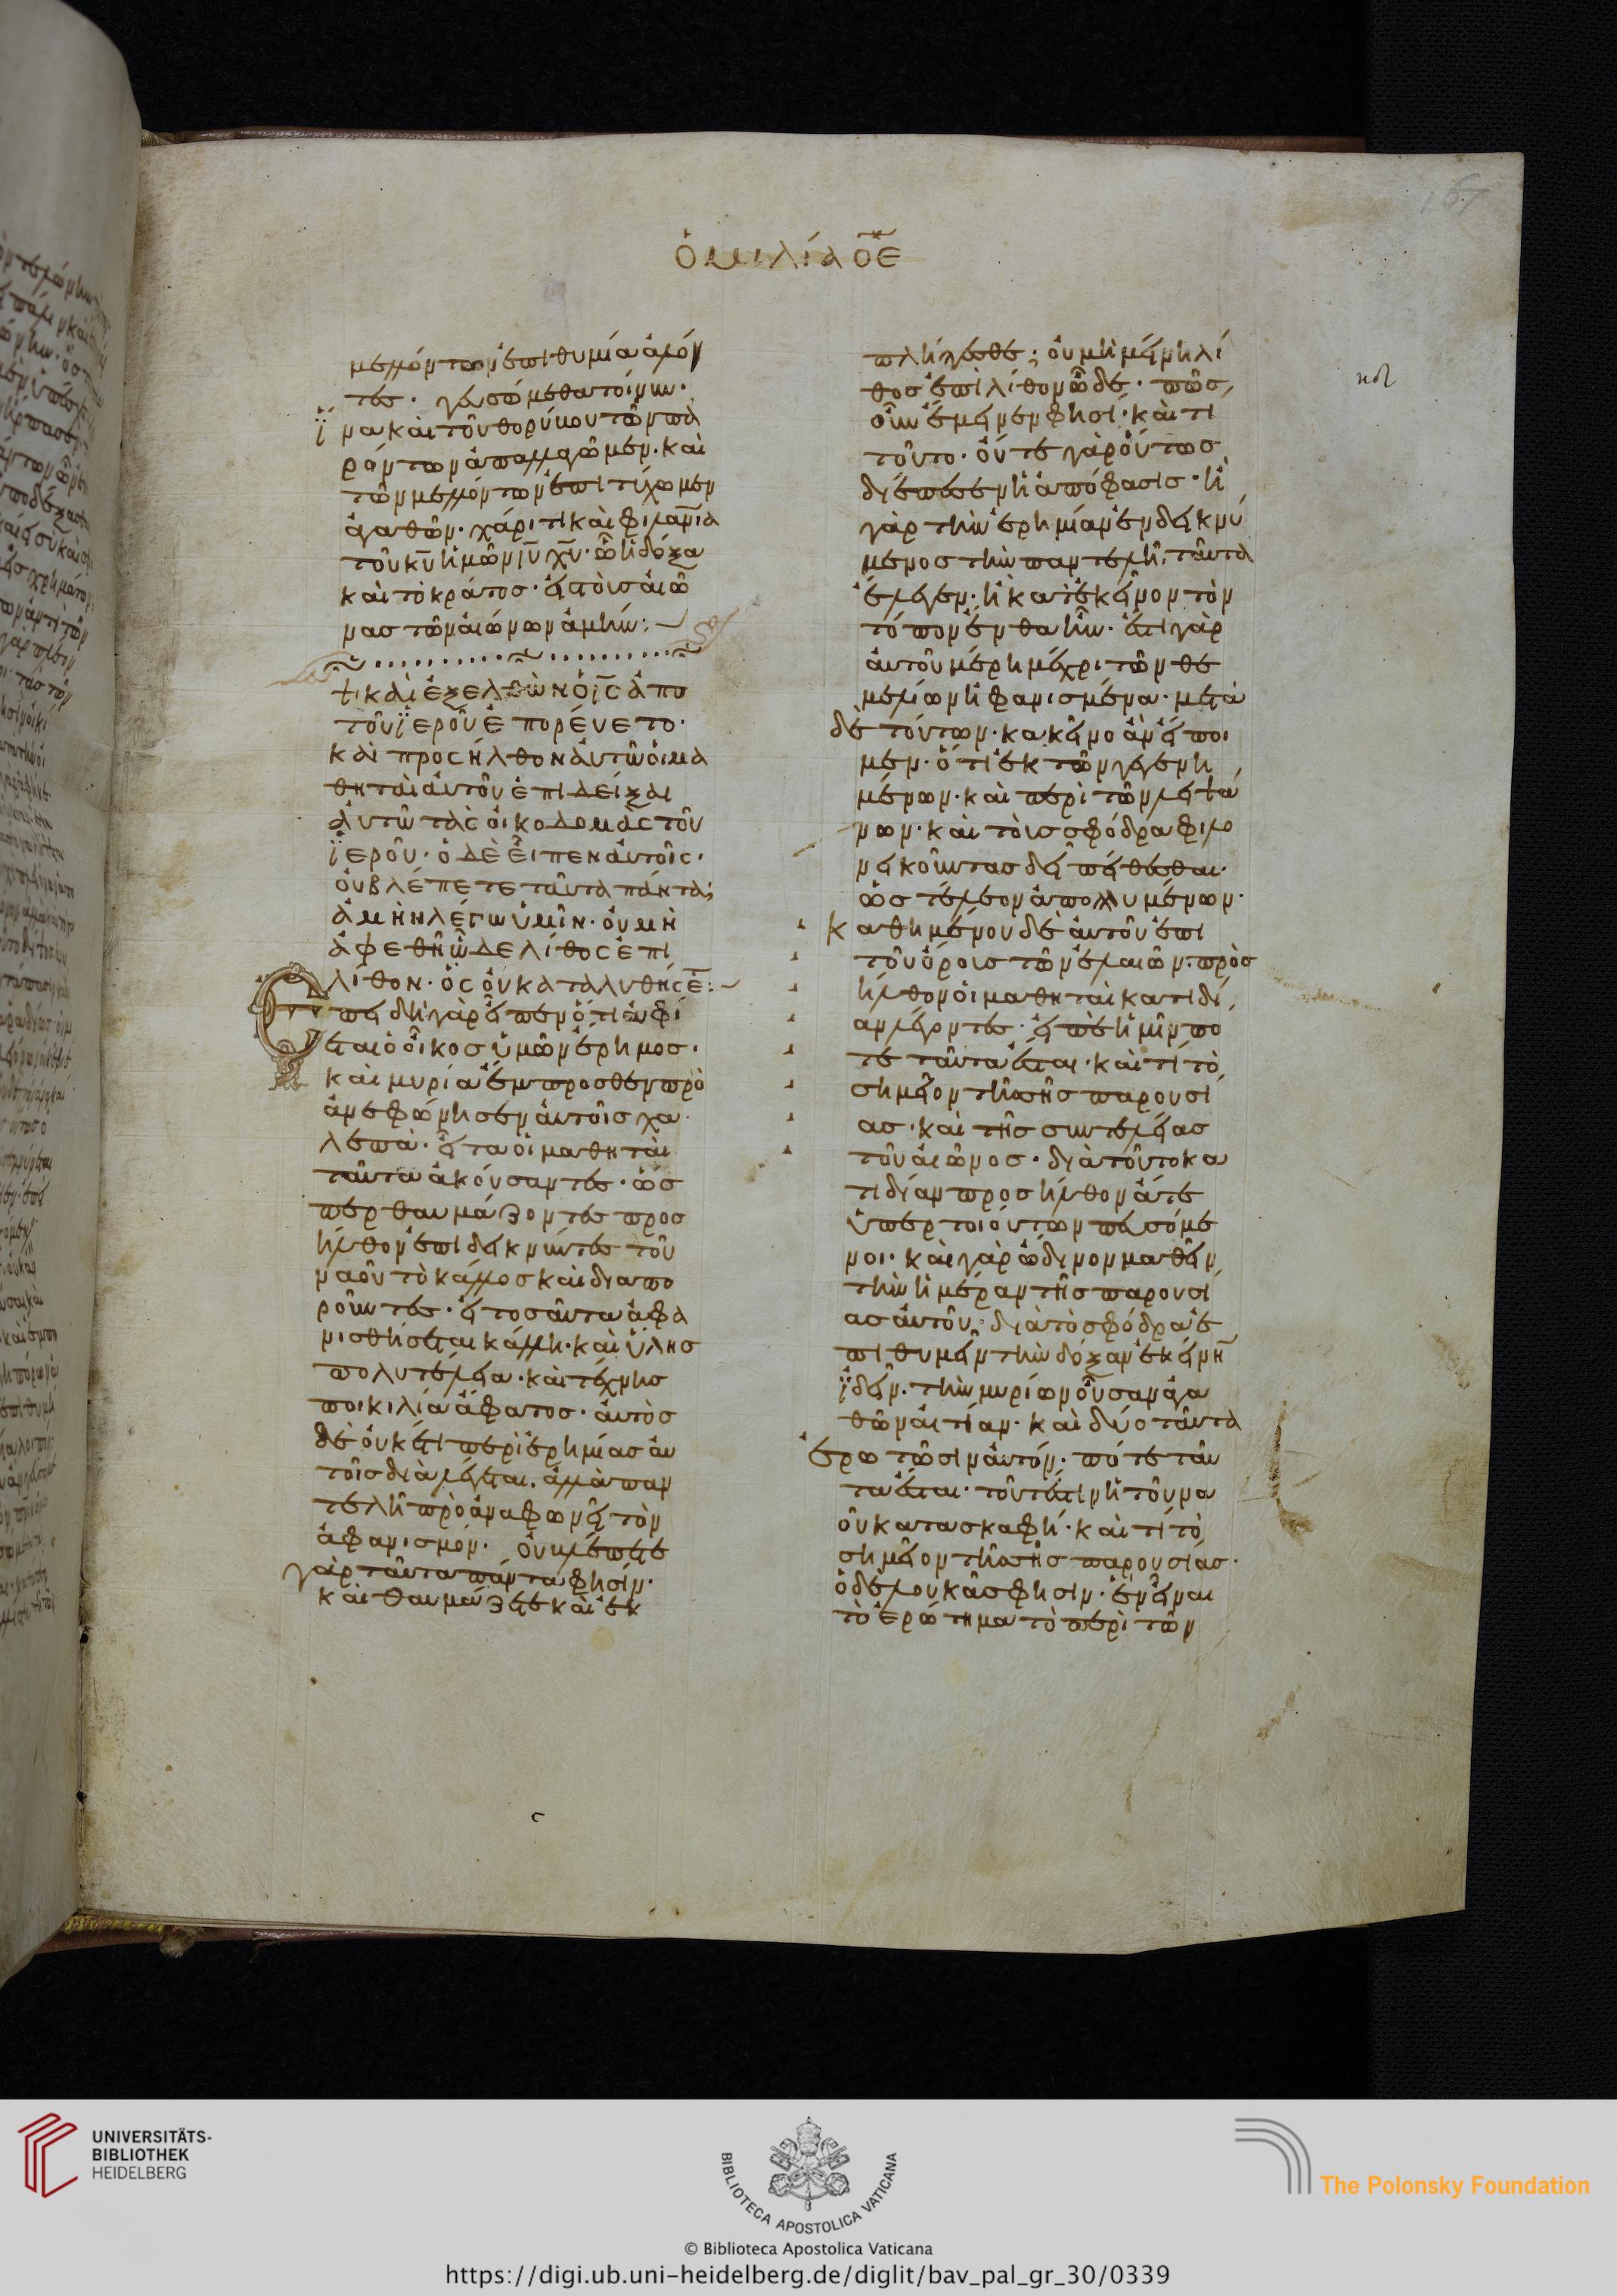 ὁμιλία ο̅ε̅
167
μελλόντων ἐπιθυμία ἁλόν
τες. γευσώμεθα τοίνυν.
ἵνα καὶ τοῦ θορύβου τῶν πα
ρόντων ἀπαλλαγῶμεν. καὶ
τῶν μελλόντων ἐπιτύχωμεν
ἀγαθῶν. χάριτι καὶ φιλα̅νία
τοῦ κ̅υ̅ ἡμῶν ι̅υ̅ χ̅υ̅. ὧ ἡ δόξα
καὶ τὸ κράτος. εἰς τοὺς αἰῶ
νας τῶν αἰώνων ἀμήν:
καὶ ἐξελθὼν ὁ ι̅ς̅ ἀπο
τοῦ ἱεροῦ ἐπορεύετο.
καὶ προσῆλθον αὐτῶ οἱ μα
θηταὶ αὐτοῦ ἐπιδεῖξαι
αὐτῶ τὰς οἰκοδομὰς τοῦ
ἱεροῦ. ὁ δὲ εἶπεν αὐτοῖς.
οὐ βλέπετε ταῦτα πάντα;
ἀμὴν λέγω ὑμῖν. οὐ μὴ
ἀφεθῆ ὧδε λίθος ἐπι
λίθον. ὃς οὐ καταλυθήσε̅:
Επειδὴ γὰρ εἶπεν ὅτι ἀφί
εται ὁ οἶκος ὑμῶν ἔρημος.
καὶ μυρία ἔμπροσθεν προ
ανεφώνησεν αὐτοῖς χα
λεπά. εἶτα οἱ μαθηταὶ
ταῦτα ἀκούσαντες. ὥσ
περ θαυμάζοντες προσ
ῆλθον ἐπιδεικνύντες τοῦ
ναοῦ τὸ κάλλος καὶ διαπο
ροῦντες. εἰ τοσαῦτα ἀφα
νισθήσεται κάλλη. καὶ ὕλης
πολυτέλεια. καὶ τέχνης
ποικιλία ἄφατος. αὐτὸς
δὲ οὐκέτι περὶ ἐρημίας αὐ
τοῖς διαλέγεται. ἀλλὰ παν
τελῆ προαναφωνεῖ τὸν
ἀφανισμόν. οὐ βλέπετε
γὰρ ταῦτα πάντα φησίν.
καὶ θαυμάζετε καὶ ἐκ
πλήττεσθε; οὐ μὴ μείνη λί
θος ἐπὶ λίθον ὧδε. πῶς
οὖν ἔμεινεν φησί. καὶ τί
τοῦτο. οὔτε γὰρ οὕτως
διέπεσεν ἡ ἀπόφασις. ἢ
γὰρ τὴν ἐρημίαν ἐνδεικνύ
μενος τὴν παντελῆ, ταῦτα
ἔλεγεν. ἢ κατ' ἐκεῖνον τὸν
τόπον ἔνθα ἦν. ἔτι γὰρ
αὐτοῦ μέρη μέχρι τῶν θε
μελίων ἠφανισμένα. μετὰ
δὲ τούτων. κἀκεῖνο ἂν εἴποι
μεν. ὅτι ἐκ τῶν γεγενη
μένων. καὶ περὶ τῶν λειπο
νων. καὶ τοὺς σφόδρα φιλο
νεικοῦντας δεῖ πείθεσθαι.
ὡς τέλεον ἀπολλυμένων.
καθημένου δὲ αὐτοῦ ἐπι
τοῦ ὄρους τῶν ἐλαιῶν. προσ
ῆλθον οἱ μαθηταὶ κατιδί
αν λέγοντες. εἰπὲ ἡμῖν πό
τε ταῦτα ἔσται. καὶ τί τὸ
σημεῖον τῆς σῆς παρουσί
ας. καὶ τῆς συντελείας
τοῦ αἰῶνος. διὰ τοῦτο κα
τιδίαν προσῆλθον ἅτε
ὑπερ τοιούτων πευσόμε
νοι. καὶ γὰρ ὤδινον μαθεῖν
τὴν ἡμέραν τῆς παρουσί
ας αὐτοῦ. διὰ τὸ σφόδρα ἐ
πιθυμεῖν τὴν δόξαν ἐκείνη̅
ἰδεῖν. τὴν μυρίων οὖσαν ἀγα
θῶν αἰτίαν. καὶ δύο ταῦτα
ἐρωτῶσιν αὐτόν. πότε ταῦ
τα ἔσται. τουτέστιν ἡ τοῦ να
οῦ κατασκαφή. καὶ τί τὸ
σημεῖον τῆς σῆς παρουσίας.
ὁ δὲ λουκᾶς φησιν. ἓν εἶναι
τὸ ἐρώτημα τὸ περὶ τῶν
UNIVERSITÄTS-
BIBLIOTHEK
HEIDELBERG
BIBLIOTECA APOSTOLICA VATICANA
The Polonsky Foundation
© Biblioteca Apostolica Vaticana
https://digi.ub.uni-heidelberg.de/diglit/bav_pal_gr_30/0339